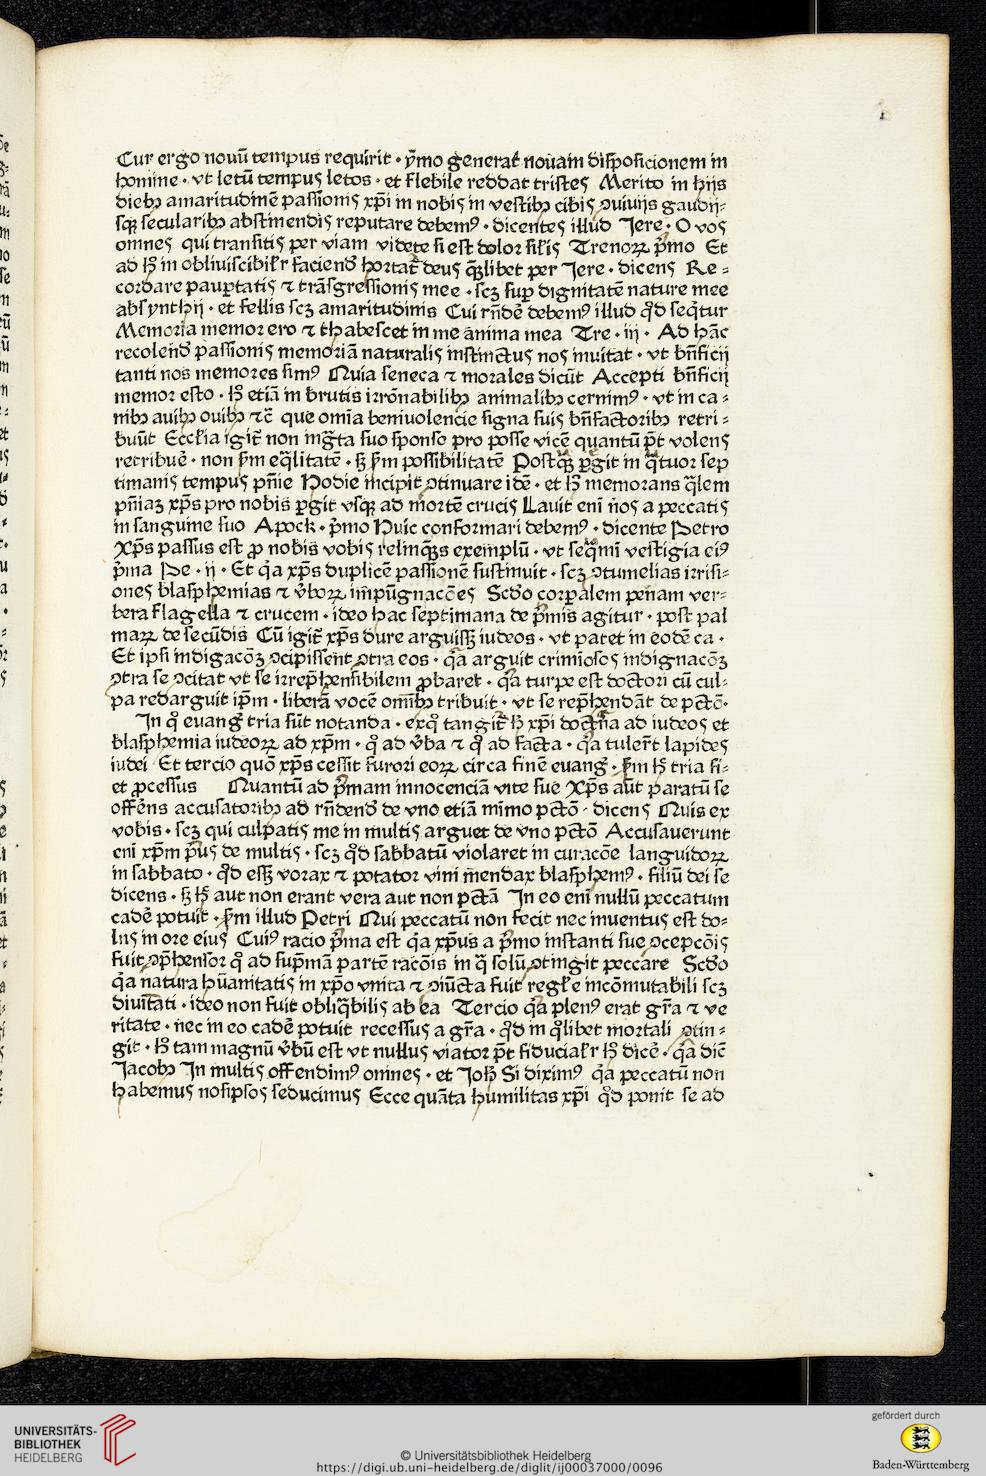 Cur ergo nouū tempus requirit · ẏmo generat̄ nouam disposicionem in
homine · vt letū tempus letos · et flebile reddat tristes Merito in hijs
dieb⁊ amaritudinē passionis xp̄i in nobis in vestib⁊ cibis ↄuiuijs gaudij⸗
sqꝫ secularib⁊ abstinendis reputare debemꝰ · dicentes illud Jere · O vos
omnes qui transitis per viam videte si est dolor sil̄is Trenoꝝ p̄mo Et
ad hꝭ in obliuiscibilr̄ faciend̄ hortat̄ deus qꝫlibet per Jere · dicens Re⸗
cordare paup̄tatis ⁊ trāsgressionis mee · scꝫ sup̄ dignitatē nature mee
absynthij · et fellis scꝫ amaritudinis Cui rn̄dē debemꝰ illud qd̄ seq̄tur
Memoria memor ero ⁊ thabescet in me anima mea Tre · iij · Ad hāc
recolend̄ passionis memoriā naturalis instinctus nos inuitat · vt bn̄ficij
tanti nos memores simꝰ Quia seneca ⁊ morales dicūt Accepti bn̄ficij
memor esto · hꝭ etiā in brutis irrōnabilib⁊ animalib⁊ cernimꝰ · vt in ca⸗
nib⁊ auib⁊ ouib⁊ ⁊c̄ que omīa beniuolencie signa suis bn̄factorib⁊ retri⸗
buūt Eccl̄ia igit̄ non ingͣta suo sponso pro posse vicē quantū p̄t volens
retribuē · non s̄m eq̄litatē · sꝫ s̄m possibilitatē Postqͣꝫ ꝑgit in qͣtuor sep
timanis tempus pn̄ie Hodie incipit ↄtinuare idē · et hꝭ memorans qͣlem
pn̄iaꝫ xp̄s pro nobis ꝑgit vsqꝫ ad mortē crucis Lauit eni n̄os a peccatis
in sanguine suo Apock · p̄mo Huic conformari debemꝰ · dicente Petro
Xp̄s passus est ꝓ nobis vobis relinqͣꝫs exemplū · vt seqͣmī vestigia eiꝰ
p̄ma Pe · ij · Et qͣa xp̄s duplicē passionē sustinuit · scꝫ ↄtumelias irrisi⸗
ones blasphemias ⁊ v̄boꝝ īmpūgnacōes Scd̄o corꝑalem penam ver⸗
bera flagella ⁊ crucem · ideo hac septimana de p̄mis agitur · post pal
maꝝ de secūdis Cū igit̄ xp̄s dure arguissꝫ iudeos · vt patet in eodē ca ·
Et ipsi indigacōꝫ ↄcipissent ↄtra eos · qͣa arguit crimiosos indignacōꝫ
ↄtra se ↄcitat vt se irrep̄hensibilem ꝓbaret · qͣa turpe est doctori cū cul⸗
pa redarguit ip̄m · liberā vocē om̄ib⁊ tribuit · vt se rep̄hendāt de pctō·
In qͦ euanḡ tria sūt notanda · exqͦ tangit̄ hꝭ xp̄i doctͥna ad iudeos et
blasphemia iudeoꝝ ad xp̄m · qͦ ad v̄ba ⁊ qͦ ad facta · qͣa tuler̄t lapides
iudei Et tercio quō xp̄s cessit furori eoꝝ circa finē euanḡ · s̄m hꝭ tria fi⸗
et ꝓcessus Quantū ad p̄mam innocenciā vite sue Xp̄s aūt paratū se
offēns accusatorib⁊ ad rn̄dend̄ de vno etiā minimo pctō · dicens Quis ex
vobis · scꝫ qui culpatis me in multis arguet de vno pctō Accusauerunt
eni xp̄m p̄us de multis · scꝫ qd̄ sabbatū violaret in curacōe languidoꝝ
in sabbato · qd̄ essꝫ vorax ⁊ potator vini mendax blasphemꝰ · filiū dei se
dicens · sꝫ hꝭ aut non erant vera aut non pctā In eo eni nullū peccatum
cadē potuit · s̄m illud Petri Qui peccatū non fecit nec inuentus est do⸗
lus in ore eius Cuiꝰ racio p̄ma est qͣa xp̄us a p̄mo instanti sue ↄcepcōis
fuit ↄp̄hensor qͦ ad sup̄mā partē racōis in qͣ solū ↄtingit peccare Scd̄o
qͣa natura hūanitatis in xp̄o vnita ⁊ ↄiūcta fuit regl̄e incōmutabili scꝫ
diuītati · ideo non fuit obliqͣbilis ab ea Tercio qͣa plenꝰ erat gr̄a ⁊ ve
ritate · nec in eo cadē potuit recessus a gr̄a · qd̄ in qͦlibet mortali ↄtin⸗
git · hꝭ tam magnū v̄bū est vt nullus viator p̄t fiducialr̄ hꝭ dicē · qͣa dic̄
Jacob⁊ In multis offendimꝰ omnes · et Joh̄ Si diximꝰ qͣa peccatū non
habemus nosipsos seducimus Ecce quāta humilitas xp̄i qd̄ ponit se ad
UNIVERSITÄTS-
BIBLIOTHEK
HEIDELBERG
© Universitätsbibliothek Heidelberg
https://digi.ub.uni-heidelberg.de/diglit/ij00037000/0096
gefördert durch
Baden-Württemberg